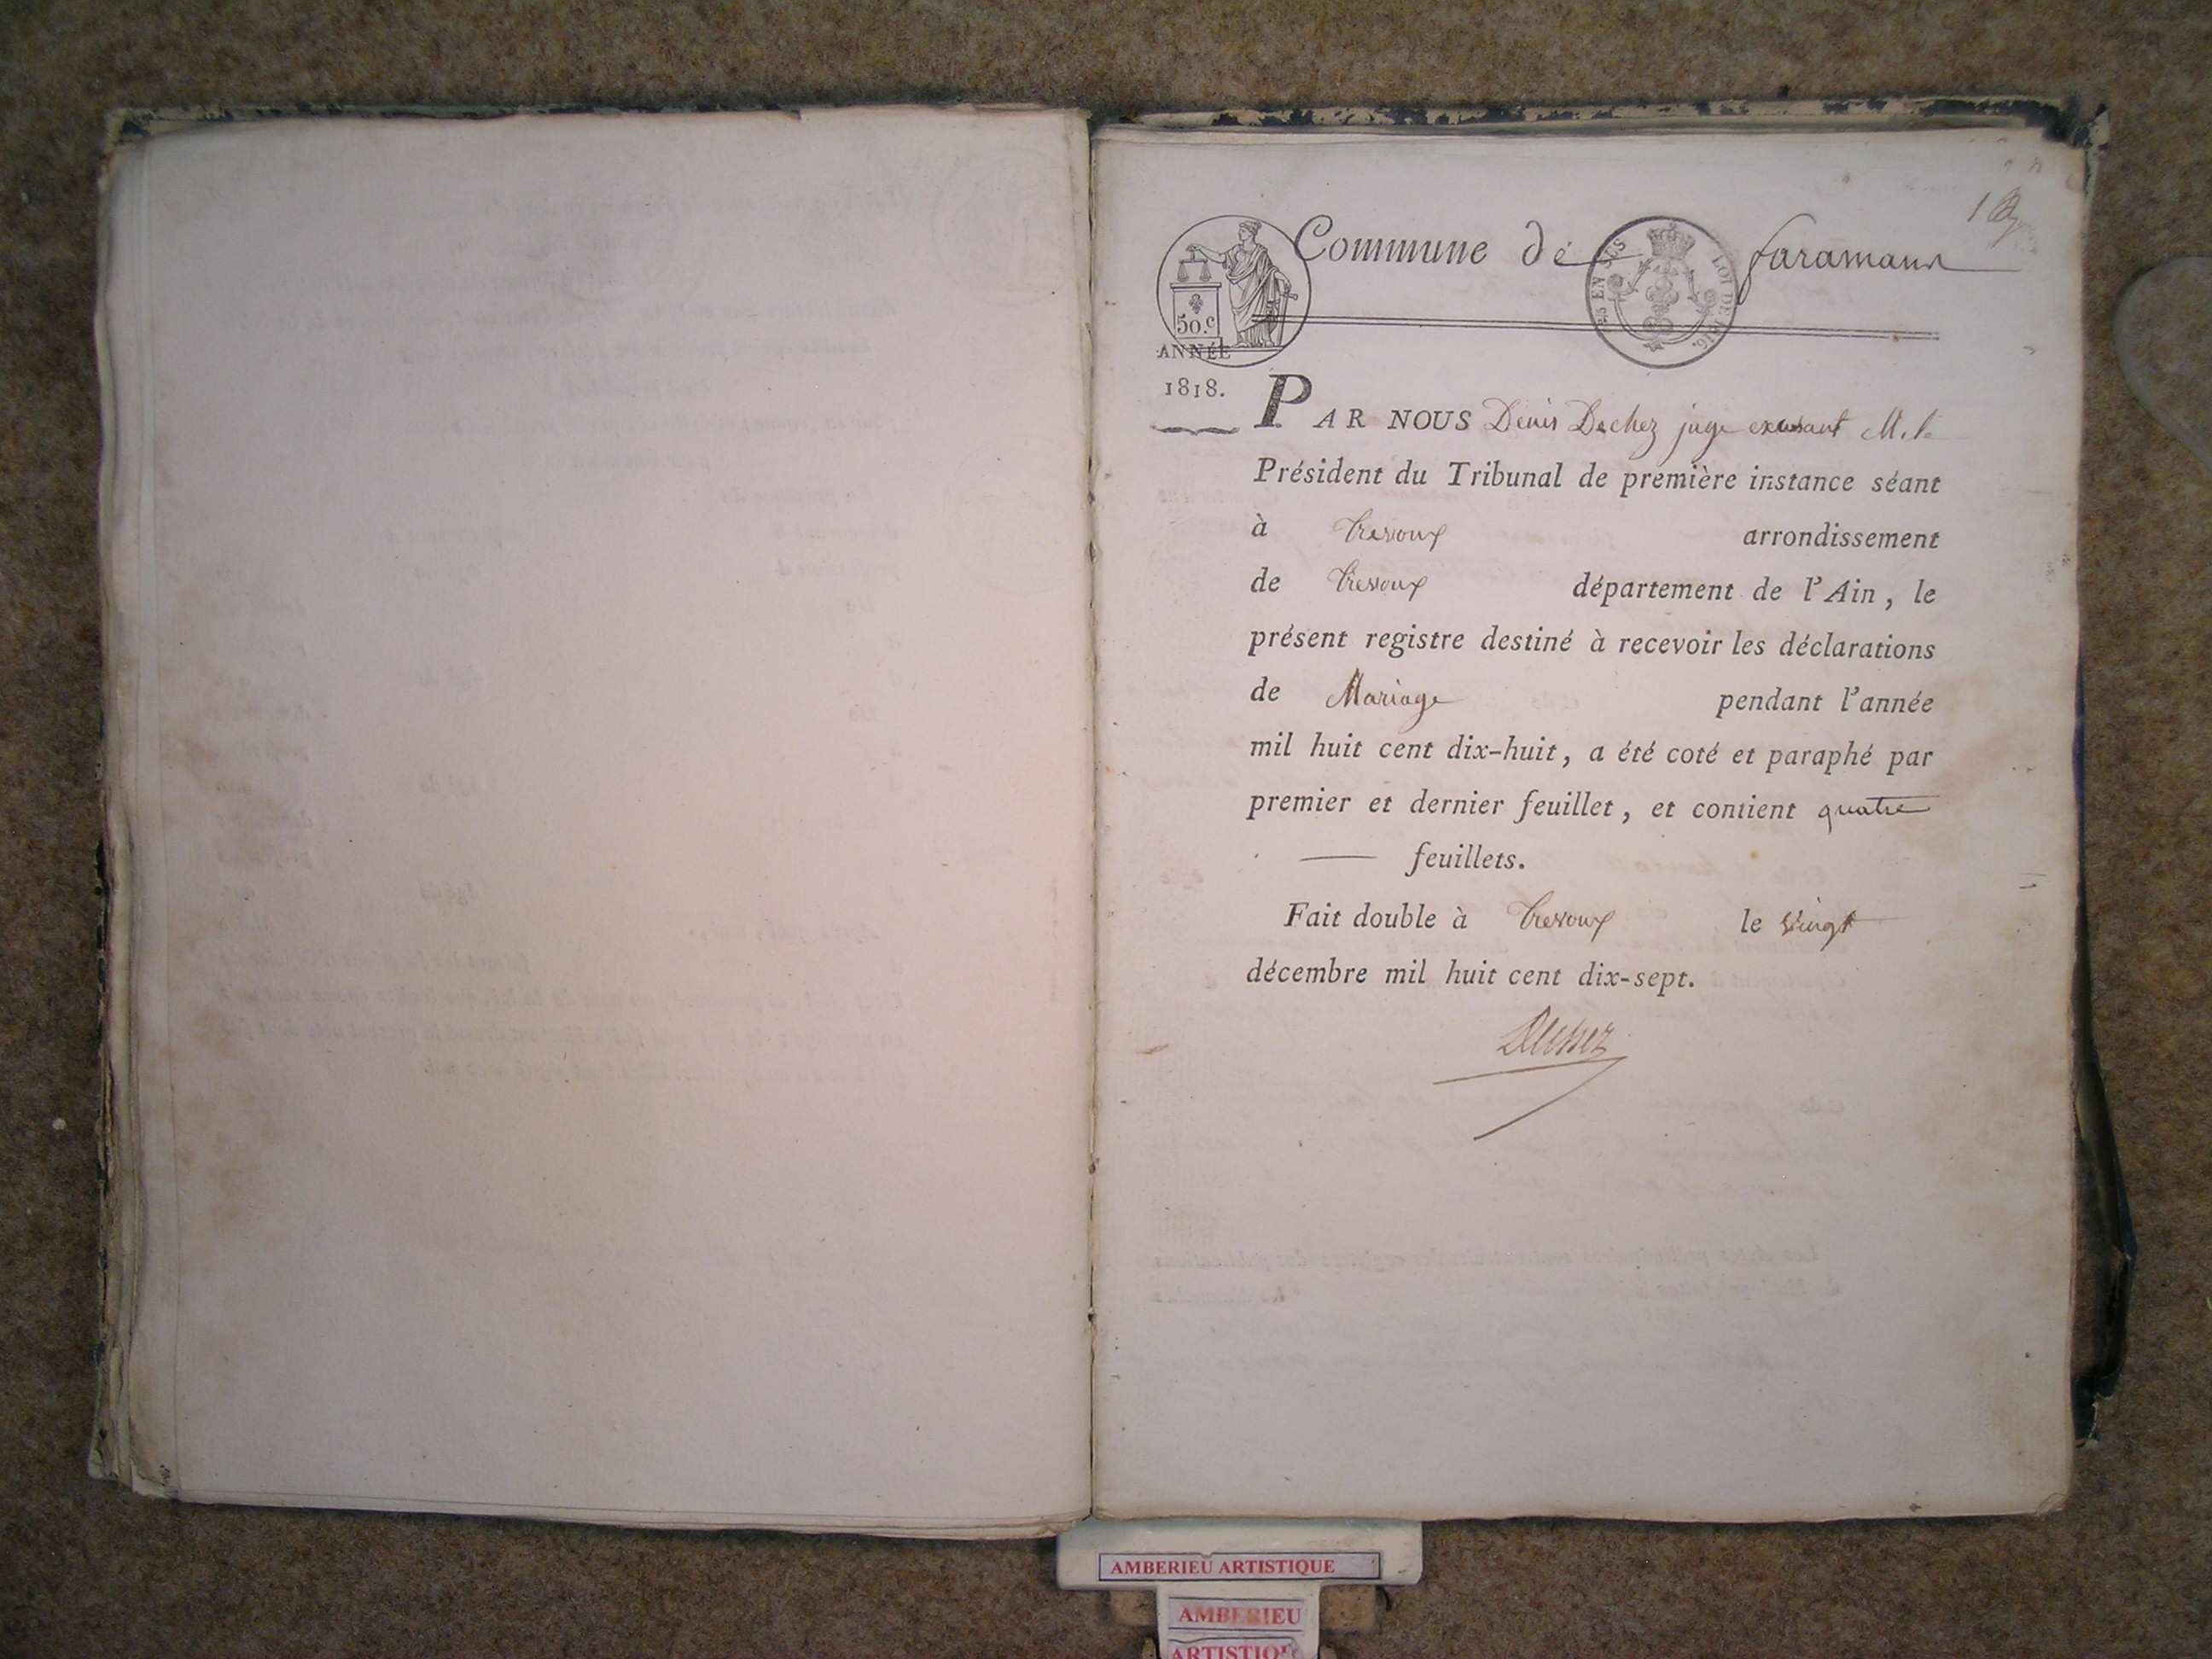 Commune de faramans
50.c
ANNÉE
1818.
PAR NOUS Denis Dechez juge excusant M. le
Président du Tribunal de première instance séant
à Trevoux arrondissement
de Trevoux département de l'Ain, le
présent registre destiné à recevoir les déclarations
de Mariage pendant l'année
mil huit cent dix-huit, a été coté et paraphé par
premier et dernier feuillet, et contient quatre
— feuillets.
Fait double à Trevoux le vingt
décembre mil huit cent dix-sept.
Dechez
AMBERIEU ARTISTIQUE
AMBERIEU
ARTISTIQUE